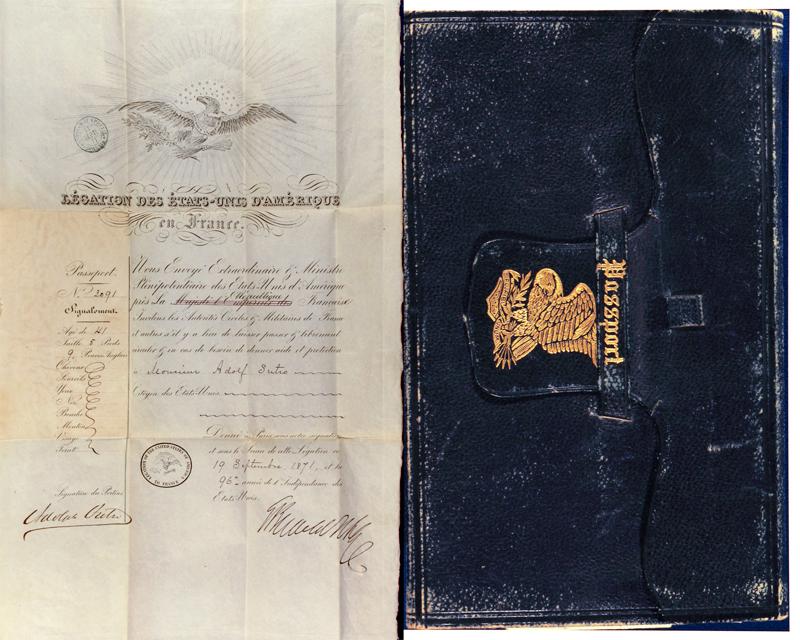 LÉGATION DES ÉTATS-UNIS D'AMÉRIQUE
en France.
Passeport.
No. 2091
Signalement.
Age de 41
Taille 5 Pieds
9 Pouces Anglais
Cheveux
Sourcils
Yeux
Nez
Bouche
Menton
Visage
Teint
Signature du Porteur
Adolph Sutro
Nous Envoyé Extraordinaire & Ministre
Plénipotentiaire des États-Unis d'Amérique
près La République Française
Invitons les Autorités Civiles & Militaires de France
et autres s'il y a lieu de laisser passer & librement
circuler & en cas de besoin de donner aide et protection
à Monsieur Adolf Sutro
Citoyen des États-Unis.
Donné à Paris sous notre signature
et sous le Sceau de cette Légation ce
19 Septembre 1871, et la
96e année de l'Indépendance des
États-Unis.
LEGATION OF THE UNITED STATES OF AMERICA
TO FRANCE
Passport